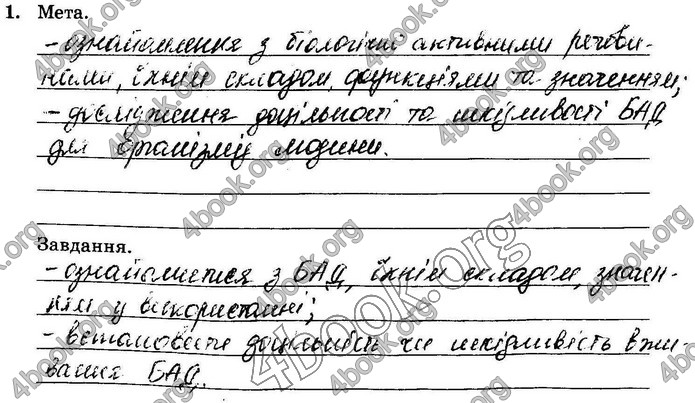 1. Мета.
- ознайомлення з біологічно активними речови-
нами, їхнім складом, функціями та значенням;
- дослідження доцільності та шкідливості БАД
для організму людини.
Завдання.
- ознайомитися з БАД, їхнім складом, значен-
ням у використанні;
- встановити доцільність чи шкідливість вжи-
вання БАД.
4book.org